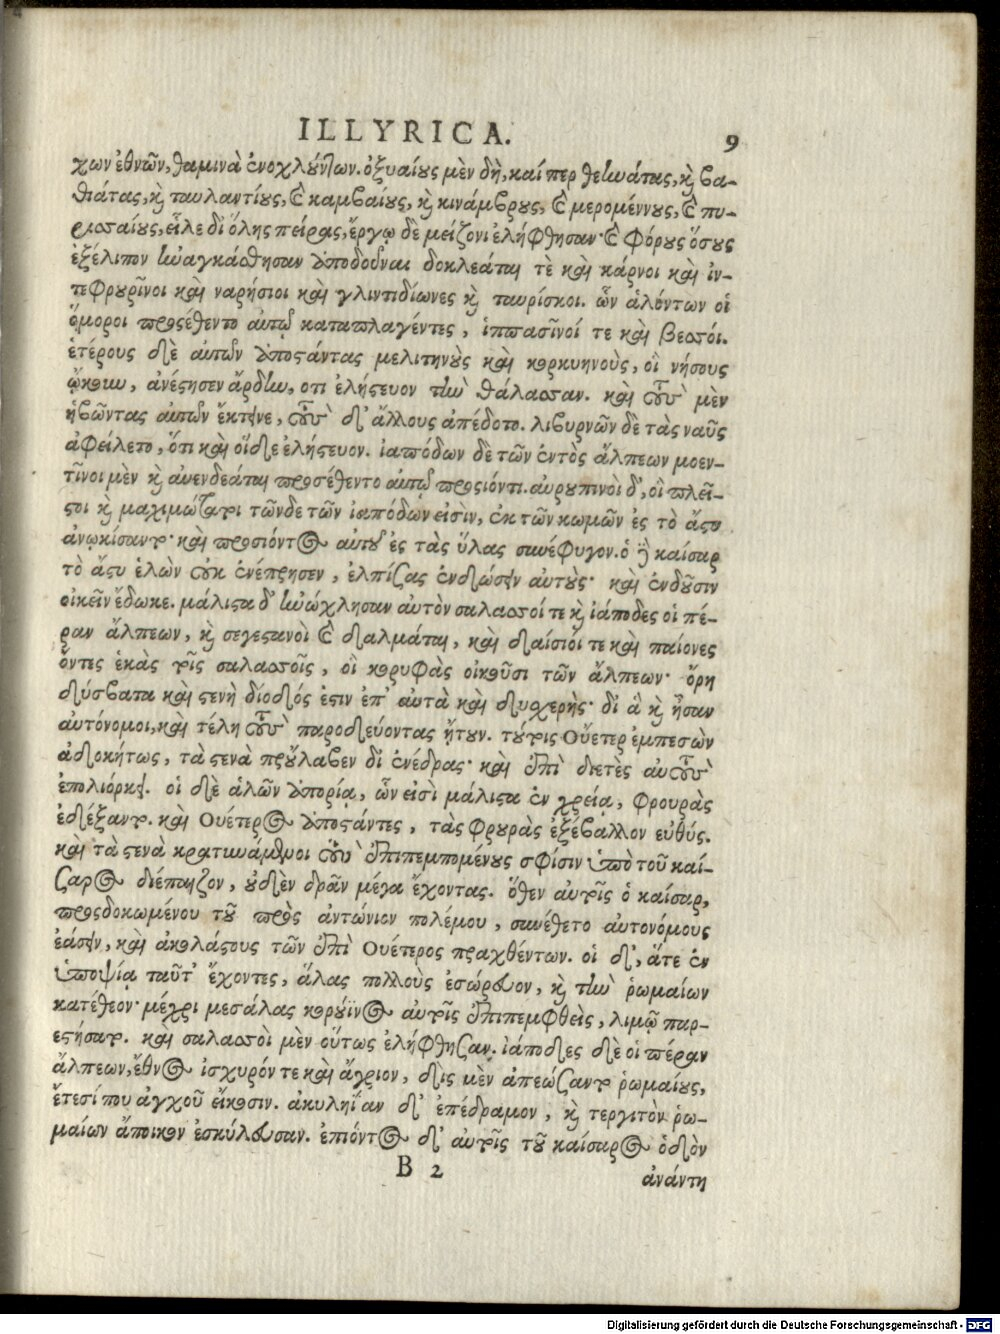 ILLYRICA. 9
χων ἐθνῶν, θαμινὰ ἐνοχλούντων. ὀξυαίους μὲν δὴ, καί περ θεηνάτας, καὶ βα-
θιάτας, καὶ ταυλαντίους, καὶ καμβαίους, καὶ κινάμβρους, καὶ μερομέννους, καὶ πυ-
ρισσαίους, εἷλε δι' ὅλης πείρας, ἔργῳ δὲ μείζονι ἐλήφθησαν· καὶ φόρους ὅσους
ἐξέλιπον ἠναγκάσθησαν ἀποδοῦναι δοκλεάται τὲ καὶ κάρνοι καὶ ἰν-
τεφρουρῖνοι καὶ ναρήσιοι καὶ γλιντιδίωνες καὶ ταυρίσκοι. ὧν ἁλόντων οἱ
ὅμοροι προσέθεντο αὐτῷ καταπλαγέντες, ἱππασῖνοί τε καὶ βεσσόι.
ἑτέρους δὲ αὐτῶν ἀποστάντας μελιτηνοὺς καὶ κορκυηνοὺς, οἳ νήσους
ᾤκουν, ἀνέστησεν ἄρδην, οτι ἐλήστευον τὴν θάλασσαν. καὶ τοὺς μὲν
ἡβῶντας αὐτῶν ἔκτεινε, τοὺς δ' ἄλλους ἀπέδοτο. λιβυρνῶν δὲ τὰς ναῦς
ἀφείλετο, ὅτι καὶ οἵδε ἐλήστευον. ἰαπόδων δὲ τῶν ἐντὸς ἄλπεων μοεν-
τῖνοι μὲν καὶ αὐενδεάται προσέθεντο αὐτῷ προσιόντι. αὐρυπινοὶ δ', οἳ πλεῖ-
στοι καὶ μαχιμώτατοι τῶνδε τῶν ἰαπόδων εἰσὶν, ἐκ τῶν κωμῶν ἐς τὸ ἄστυ
ἀνῳκίσαντο· καὶ προσιόντος αὐτοῦ ἐς τὰς ὕλας συνέφυγον. ὁ δὲ καίσαρ
τὸ ἄστυ ἑλὼν οὐκ ἐνέπρησεν, ἐλπίσας ἐνδώσειν αὐτούς· καὶ ἐνδοῦσιν
οἰκεῖν ἔδωκε. μάλιστα δ' ἠνώχλησαν αὐτὸν σαλασσοί τε καὶ ἰάποδες οἱ πέ-
ραν ἄλπεων, καὶ σεγεστανοὶ καὶ δαλμάται, καὶ δαίσιόι τε καὶ παίονες
ὄντες ἑκὰς τοῖς σαλασσοῖς, οἳ κορυφὰς οἰκοῦσι τῶν ἄλπεων· ὄρη
δύσβατα καὶ στενὴ δίοδός ἐστιν ἐπ' αὐτὰ καὶ δυσχερής· δι' ἃ καὶ ἦσαν
αὐτόνομοι, καὶ τέλη τοὺς παροδεύοντας ᾔτουν. τούτοις Οὐέτερ ἐμπεσὼν
ἀδοκήτως, τὰ στενὰ προὔλαβεν δι' ἐνέδρας· καὶ ἐπὶ διετὲς αὐτοὺς
ἐπολιόρκει. οἱ δὲ ἁλῶν ἀπορίᾳ, ὧν εἰσὶ μάλιστα ἐν χρείᾳ, φρουρὰς
ἐδέξαντο. καὶ Οὐέτερος ἀποστάντες, τὰς φρουρὰς ἐξέβαλλον εὐθύς.
καὶ τὰ στενὰ κρατυνάμενοι τοὺς ἐπιπεμπομένους σφίσιν ὑπὸ τοῦ καί-
σαρος διέπαιζον, οὐδὲν δρᾶν μέγα ἔχοντας. ὅθεν αὐτοῖς ὁ καίσαρ,
προσδοκωμένου τοῦ πρὸς ἀντώνιον πολέμου, συνέθετο αὐτονόμους
ἐάσειν, καὶ ἀκολάστους τῶν ἐπὶ Οὐέτερος πραχθέντων. οἱ δ', ἅτε ἐν
ὑποψίᾳ ταῦτ' ἔχοντες, ἅλας πολλοὺς ἐσώρευον, καὶ τὴν ῥωμαίων
κατέθεον· μέχρι μεσάλας κορούϊνος αὐτοῖς ἐπιπεμφθεὶς, λιμῷ παρ-
εστήσατο. καὶ σαλασσοὶ μὲν οὕτως ἐλήφθησαν. ἰάποδες δὲ οἱ πέραν
ἄλπεων, ἔθνος ἰσχυρόν τε καὶ ἄγριον, δὶς μὲν ἀπεώσαντο ῥωμαίους,
ἔτεσί που ἀγχοῦ εἴκοσιν. ἀκυληΐαν δ' ἐπέδραμον, καὶ τεργιτὸν ῥω-
μαίων ἄποικον ἐσκύλευσαν. ἐπιόντος δ' αὐτοῖς τοῦ καίσαρος ὁδὸν
B 2 ἀνάντη
Digitalisierung gefördert durch die Deutsche Forschungsgemeinschaft - DFG